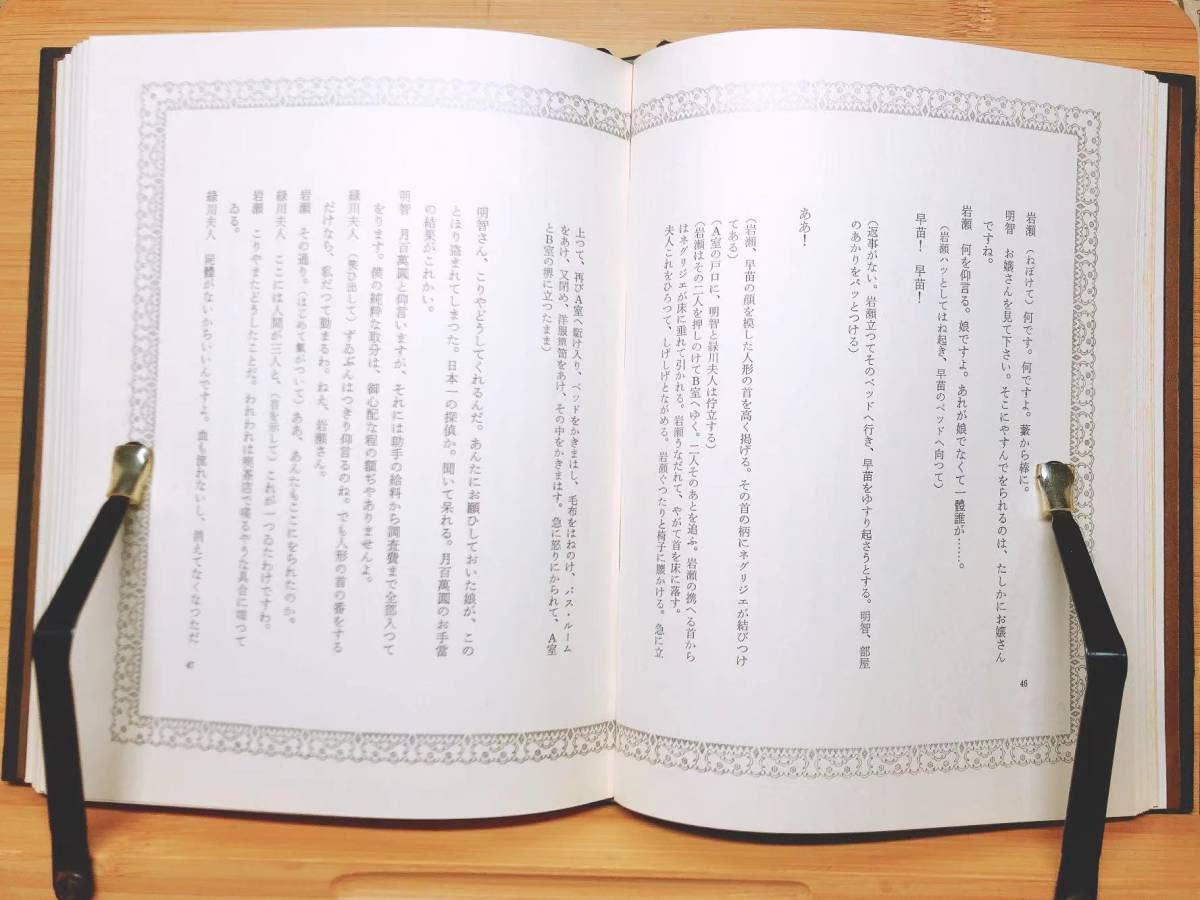 岩瀬 （ねぼけて）何です。何ですよ。藪から棒に。
明智 お嬢さんを見て下さい。そこにやすんでをられるのは、たしかにお嬢さん
ですね。
岩瀬 何を仰言る。娘ですよ。あれが娘でなくて一體誰が……。
（岩瀬ハッとしてはね起き、早苗のベッドへ向つて）
早苗！ 早苗！
（返事がない。岩瀬立つてそのベッドへ行き、早苗をゆすり起さうとする。明智、部屋
のあかりをパッとつける）
ああ！
（岩瀬、早苗の顔を模した人形の首を高く掲げる。その首の柄にネグリジエが結びつけ
てある）
（Ａ室の戸口に、明智と緑川夫人は佇立する）
（岩瀬はその二人を押しのけてＢ室へゆく。二人そのあとを追ふ。岩瀬の携へる首から
はネグリジエが床に垂れて引かれる。岩瀬うなだれて、やがて首を床に落す。
夫人これをひろつて、しげしげとながめる。岩瀬ぐつたりと椅子に腰かける。急に立
46
上つて、再びＡ室へ駈け入り、ベッドをかきまはし、毛布をはねのけ、バス・ルーム
をあけ、又閉め、洋服箪笥をあけ、その中をかきまはす。急に怒りにかられて、Ａ室
とＢ室の堺に立つたまま）
明智さん、こりやどうしてくれるんだ。あんたにお願ひしておいた娘が、この
とほり盗まれてしまつた。日本一の探偵か。聞いて呆れる。月百萬圓のお手當
の結果がこれかい。
明智 月百萬圓と仰言いますが、それには助手の給料から調査費まで全部入つて
をります。僕の純粋な取分は、御心配な程の額ぢやありませんよ。
緑川夫人 （笑ひ出して）ずゐぶんはつきり仰言るのね。でも人形の首の番をする
だけなら、私だつて勤まるわ。ねえ、岩瀬さん。
岩瀬 その通り。（はじめて氣がついて）ああ、あんたもここにをられたのか。
緑川夫人 ここには人間が三人と、（首を示して）これが一つゐたわけですわ。
岩瀬 こりやまたどうしたことだ。われわれは喫茶店で喋るやうな具合に喋つて
ゐる。
緑川夫人 屍體がないからいいんですよ。血も流れないし、消えてなくなつただ
47